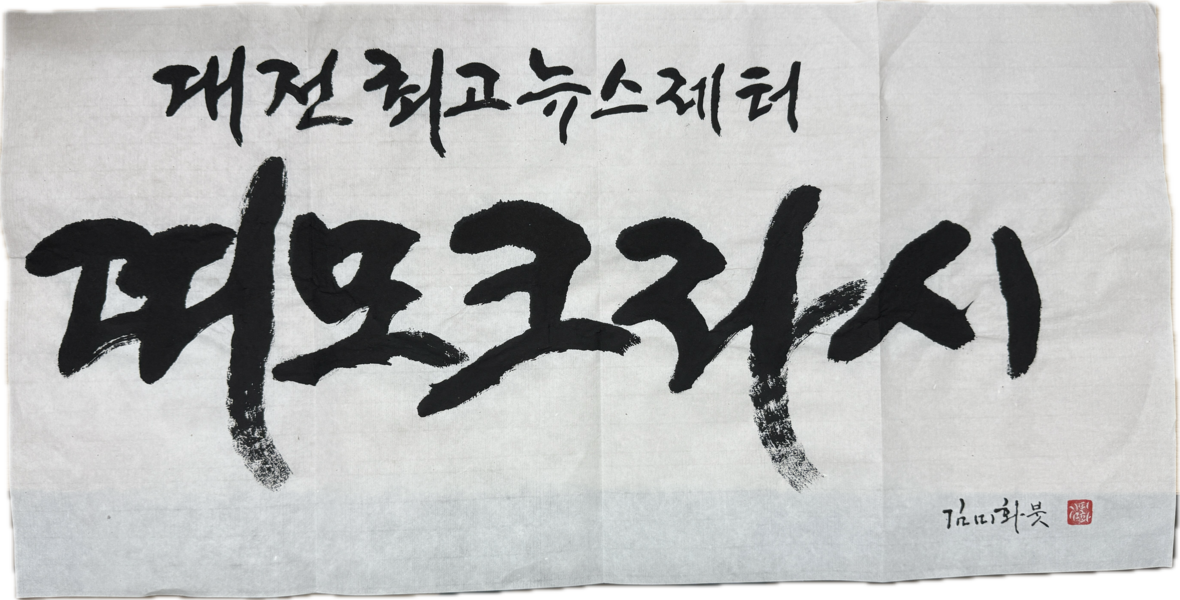 대전 최고 뉴스레터
띠모크라시
김미화 붓